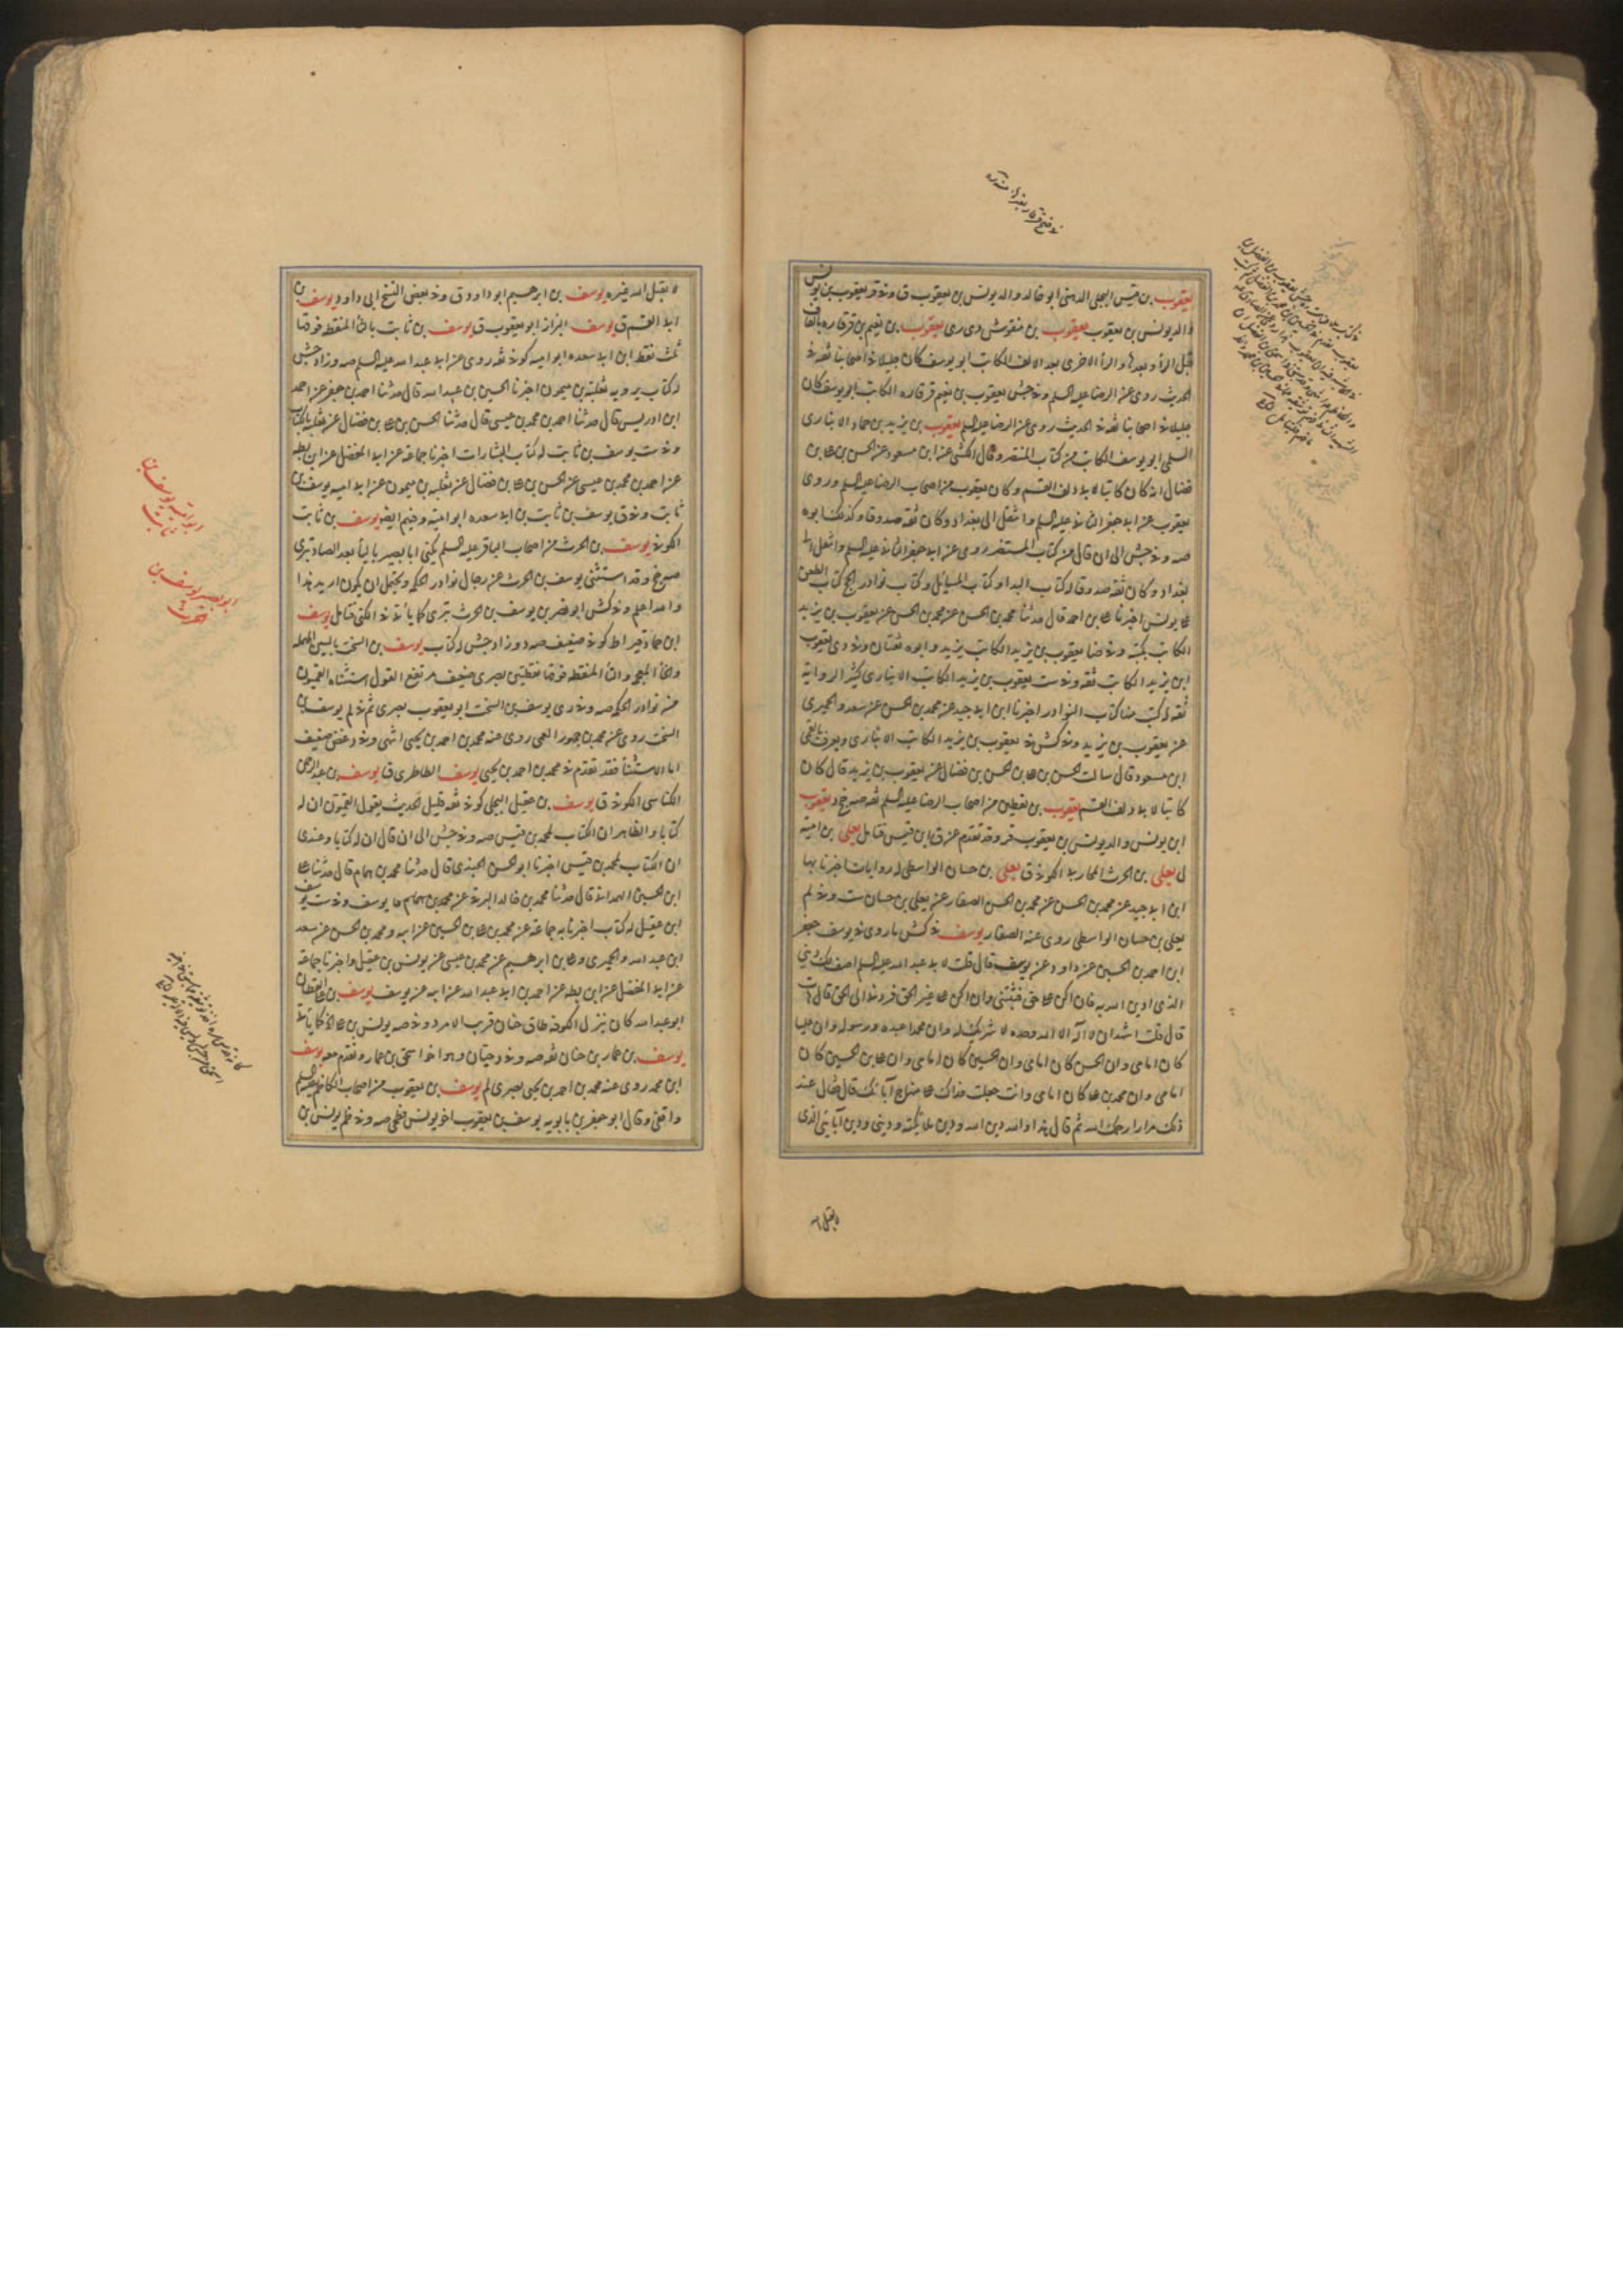 يعقوب بن قيس البجلي الدهني ابو خالد والد يونس بن يعقوب ق وفي قر يعقوب بن يونس
والد يونس بن يعقوب يعقوب بن منقوش دى رى يعقوب بن نعيم بن قرقاره بالقاف
قبل الرأ وبعدها والرأ الاخرى بعد الالف الكاتب ابو يوسف كان جليلا في اصحابنا ثقة في
الحديث روى عن الرضا عليه السلم وفي جش يعقوب بن نعيم قرقاره الكاتب ابو يوسف كان
جليلا في اصحابنا ثقة في الحديث روى عن الرضا عليه السلم يعقوب بن يزيد بن حماد الانباري
السلمي ابو يوسف الكاتب من كتاب المنتصر وقال الكشي عن ابن مسعود عن الحسن بن علي بن
فضال انه كان كاتبا لابي دلف القسم وكان يعقوب من اصحاب الرضا عليه السلم وروى
يعقوب عن ابي جعفر الثاني عليه السلم وانتقل الى بغداد وكان ثقة صدوقا وكذلك ابوه
صه وفي جش الى ان قال من كتاب المنتصر روى عن ابي جعفر الثاني عليه السلم وانتقل الى
بغداد وكان ثقة صدوقا له كتاب البدا وكتاب المسائل وكتاب نوادر الحج كتاب الطعن
على يونس اخبرنا علي بن احمد قال حدثنا محمد بن الحسن عن محمد بن الحسن عن يعقوب بن يزيد
الكاتب بكتبه وفي ضا يعقوب بن يزيد الكاتب يزيد وابوه ثقتان وفي دى يعقوب
ابن يزيد الكاتب ثقة وفي ست يعقوب بن يزيد الكاتب الانباري كثير الرواية
ثقة له كتب منها كتاب النوادر اخبرنا ابن ابي جيد عن محمد بن الحسن عن سعد والحميري
عن يعقوب بن يزيد وفي كش في يعقوب بن يزيد الكاتب الانباري ويعرف بالقمي
ابن مسعود قال سالت الحسن بن علي بن الحسن بن فضال عن يعقوب بن يزيد قال كان
كاتبا لابي دلف القسم يعقوب بن يقطين من اصحاب الرضا عليه السلم ثقة صه رخ د يعقوب
ابن يونس والد يونس بن يعقوب قر وقد تقدم عن ق ابن قيس فتامل يعلى بن امية
ل يعلى بن الحرث المحاربي الكوفي ق يعلى بن حسان الواسطي له روايات اخبرنا بها
ابن ابي جيد عن محمد بن الحسن عن محمد بن الحسن الصفار عن يعلى بن حسان ست وفي لم
يعلى بن حسان الواسطي روى عنه الصفار يوسف في كش ما روى في يوسف جعفر
ابن احمد بن الحسين عن داود عن يوسف قال قلت لابي عبد الله عليه السلم اصف لك ديني
الذي ادين الله به فان اكن على حق فثبتني وان اكن على غير الحق فردني الى الحق قال هات
قال قلت اشهد ان لا اله الا الله وحده لا شريك له وان محمدا عبده ورسوله وان عليا
كان امامي وان الحسن كان امامي وان الحسين كان امامي وان علي بن الحسين كان
امامي وان محمد بن علي كان امامي وانت جعلت فداك على منهاج آبائك قال فقال عند
ذلك مرارا رحمك الله ثم قال هذا والله دين الله ودين ملائكته وديني ودين آبائي الذي
لا يقبل الله
لا يقبل الله غيره يوسف بن ابرهيم ابو داود ق وفي بعض النسخ ابي داود يوسف بن
ابي القسم ق يوسف البزاز ابو يعقوب ق يوسف بن ثابت بالثأ المنقطه فوقها
ثلث نقط ابن ابي سعده ابو اميه كوفي ثقه روى عن ابي عبد الله عليه السلم صه وزاد جش
له كتاب يرويه ثعلبة بن ميمون اخبرنا الحسين بن عبيد الله قال حدثنا احمد بن جعفر عن احمد
ابن ادريس قال حدثنا احمد بن محمد بن عيسى قال حدثنا الحسن بن علي بن فضال عن ثعلبة بالكتاب
وفي ست يوسف بن ثابت له كتاب البشارات اخبرنا جماعة عن ابي المفضل عن ابن بطه
عن احمد بن محمد بن عيسى عن الحسن بن علي بن فضال عن ثعلبه بن ميمون عن ابي اميه يوسف بن
ثابت وفي ق يوسف بن ثابت بن ابي سعده ابو امية وفيهم ايضا يوسف بن ثابت
الكوفي يوسف بن الحرث من اصحاب الباقر عليه السلم يكنى ابا بصير باليأ بعد الصاد بتري
صه رخ وقد استثنى يوسف بن الحرث عن رجال نوادر الحكمه ويحتمل ان يكون اريد هذا
والله اعلم وفي كش ابو نصر بن يوسف بن الحرث بتري كما ياتي في الكنى فتامل يوسف
ابن حماد قيراط كوفي ضعيف صه د وزاد جش له كتاب يوسف بن السخت بالسين المهمله
والخأ المعجمه والتأ المنقطه فوقها نقطتين بصري ضعيف مرتفع القول استثناه القميون
من نوادر الحكمه صه وفي رى يوسف بن السخت ابو يعقوب بصري ثم في لم يوسف بن
السخت روى عنه محمد بن جمهور العمي روى عنه محمد بن احمد بن يحيى انتهى وفي د غض ضعيف
اما الاستثنأ فقد تقدم في محمد بن احمد بن يحيى يوسف الطاطري ق يوسف بن عبد الرحمن
الكناسي الكوفي ق يوسف بن عقيل البجلي كوفي ثقه قليل الحديث يقول القميون ان له
كتابا والظاهر ان الكتاب لمحمد بن قيس صه وفي جش الى ان قال ان له كتابا وعندي
ان الكتاب لمحمد بن قيس اخبرنا ابو الحسن الجندي قال حدثنا محمد بن همام قال حدثنا علي
ابن الحسين الهمداني قال حدثنا محمد بن خالد البرقي عن محمد بن همام عن يوسف وفي ست يوسف
ابن عقيل له كتاب اخبرنا به جماعة عن محمد بن علي بن الحسين عن ابيه ومحمد بن الحسن عن سعد
ابن عبد الله والحميري وعلي بن ابرهيم عن محمد بن عيسى عن يونس بن عقيل واخبرنا جماعة
عن ابي المفضل عن ابن بطه عن احمد بن ابي عبد الله عن ابيه عن يوسف يوسف بن علي القطان
ابو عبد الله كان ينزل الكوفه طاق حنان قريب الامر د وفي صه يونس بن علي الخ كما ياتي
يوسف بن عمار بن حنان ثقه صه وفي د حيان وهو اخو اسحق بن عمار وتقدم معه يوسف
ابن محمد روى عنه محمد بن احمد بن يحيى بصري لم يوسف بن يعقوب من اصحاب الكاظم عليه السلم
واقفي وقال ابو جعفر بن بابويه يوسف بن يعقوب اخو يونس فطحي صه وفي ظم يونس بن
ابو امية يوسف بن
ثابت
ابو بصير يوسف بن
الحرث